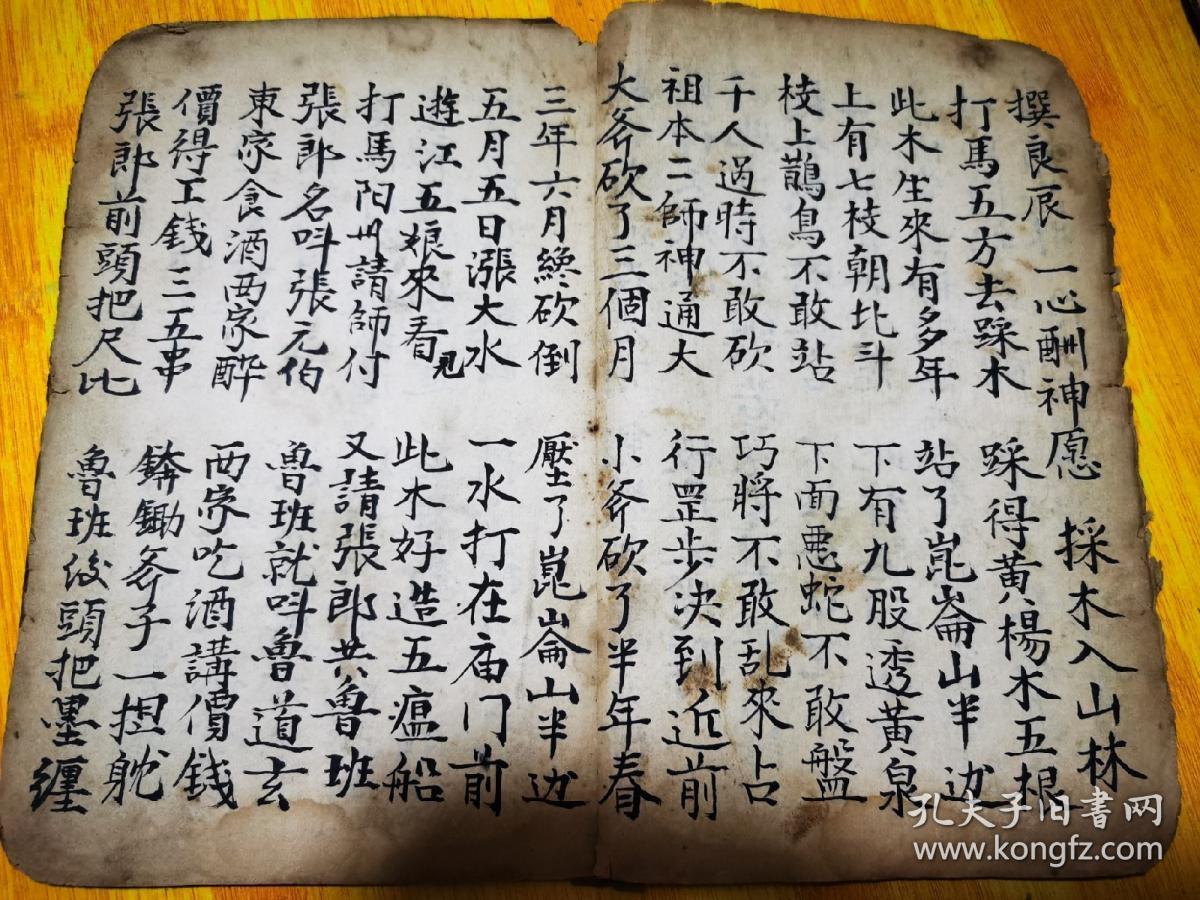 撰良辰 一心酬神愿 採木入山林
打馬五方去踩木 踩得黄楊木五根
此木生來有多年 站了崑崙山半边
上有七枝朝北斗 下有九股透黄泉
枝上鵲鳥不敢站 下面悪蛇不敢盤
千人過時不敢砍 巧將不敢乱來占
祖本二師神通大 行罡步决到近前
大斧砍了三個月 小斧砍了半年春
三年六月終砍倒 壓了崑崙山半边
五月五日漲大水 一水打在庙门前
遊江五娘來看見 此木好造五瘟船
打馬阳州請師付 又請張郎共魯班
張郎名呌張元伯 魯班就呌魯道玄
東家食酒西家醉 西家吃酒講價錢
價得工錢三五串 鋤斧子一担躭
張郎前頭把尺比 魯班後頭把墨纒
孔夫子旧书网
www.kongfz.com